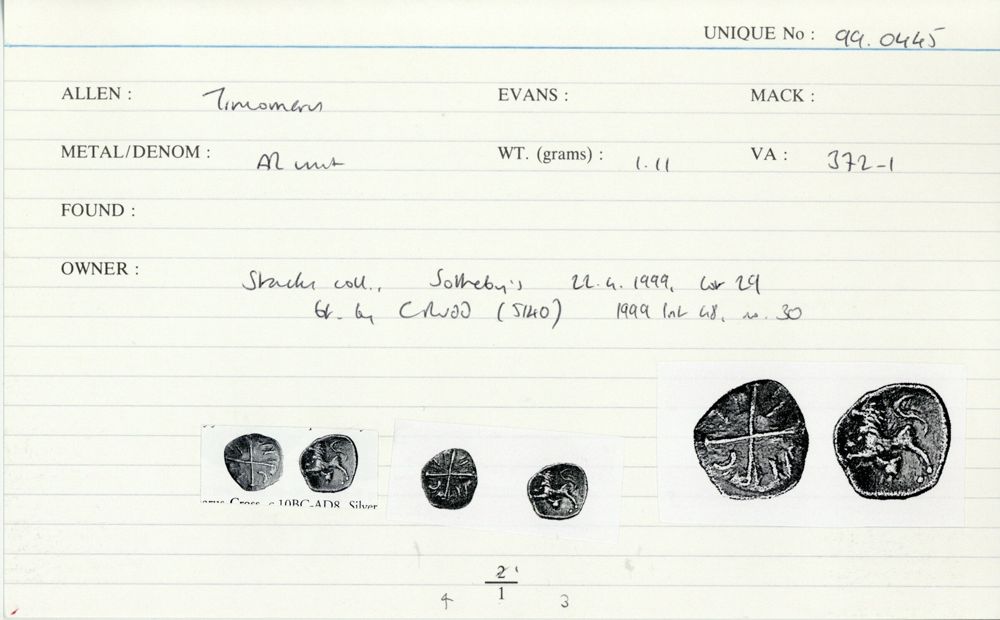 UNIQUE No : 99.0445
ALLEN : Tincomarus EVANS : MACK :
METAL/DENOM : AR unit WT. (grams) : 1.11 VA : 372-1
FOUND :
OWNER :
coll., Sotheby's 22.4.1999, lot 29
bt. by (5140) 1999 list 48, no. 30
Cross, c.10BC-AD8. Silver
2
1
4 3